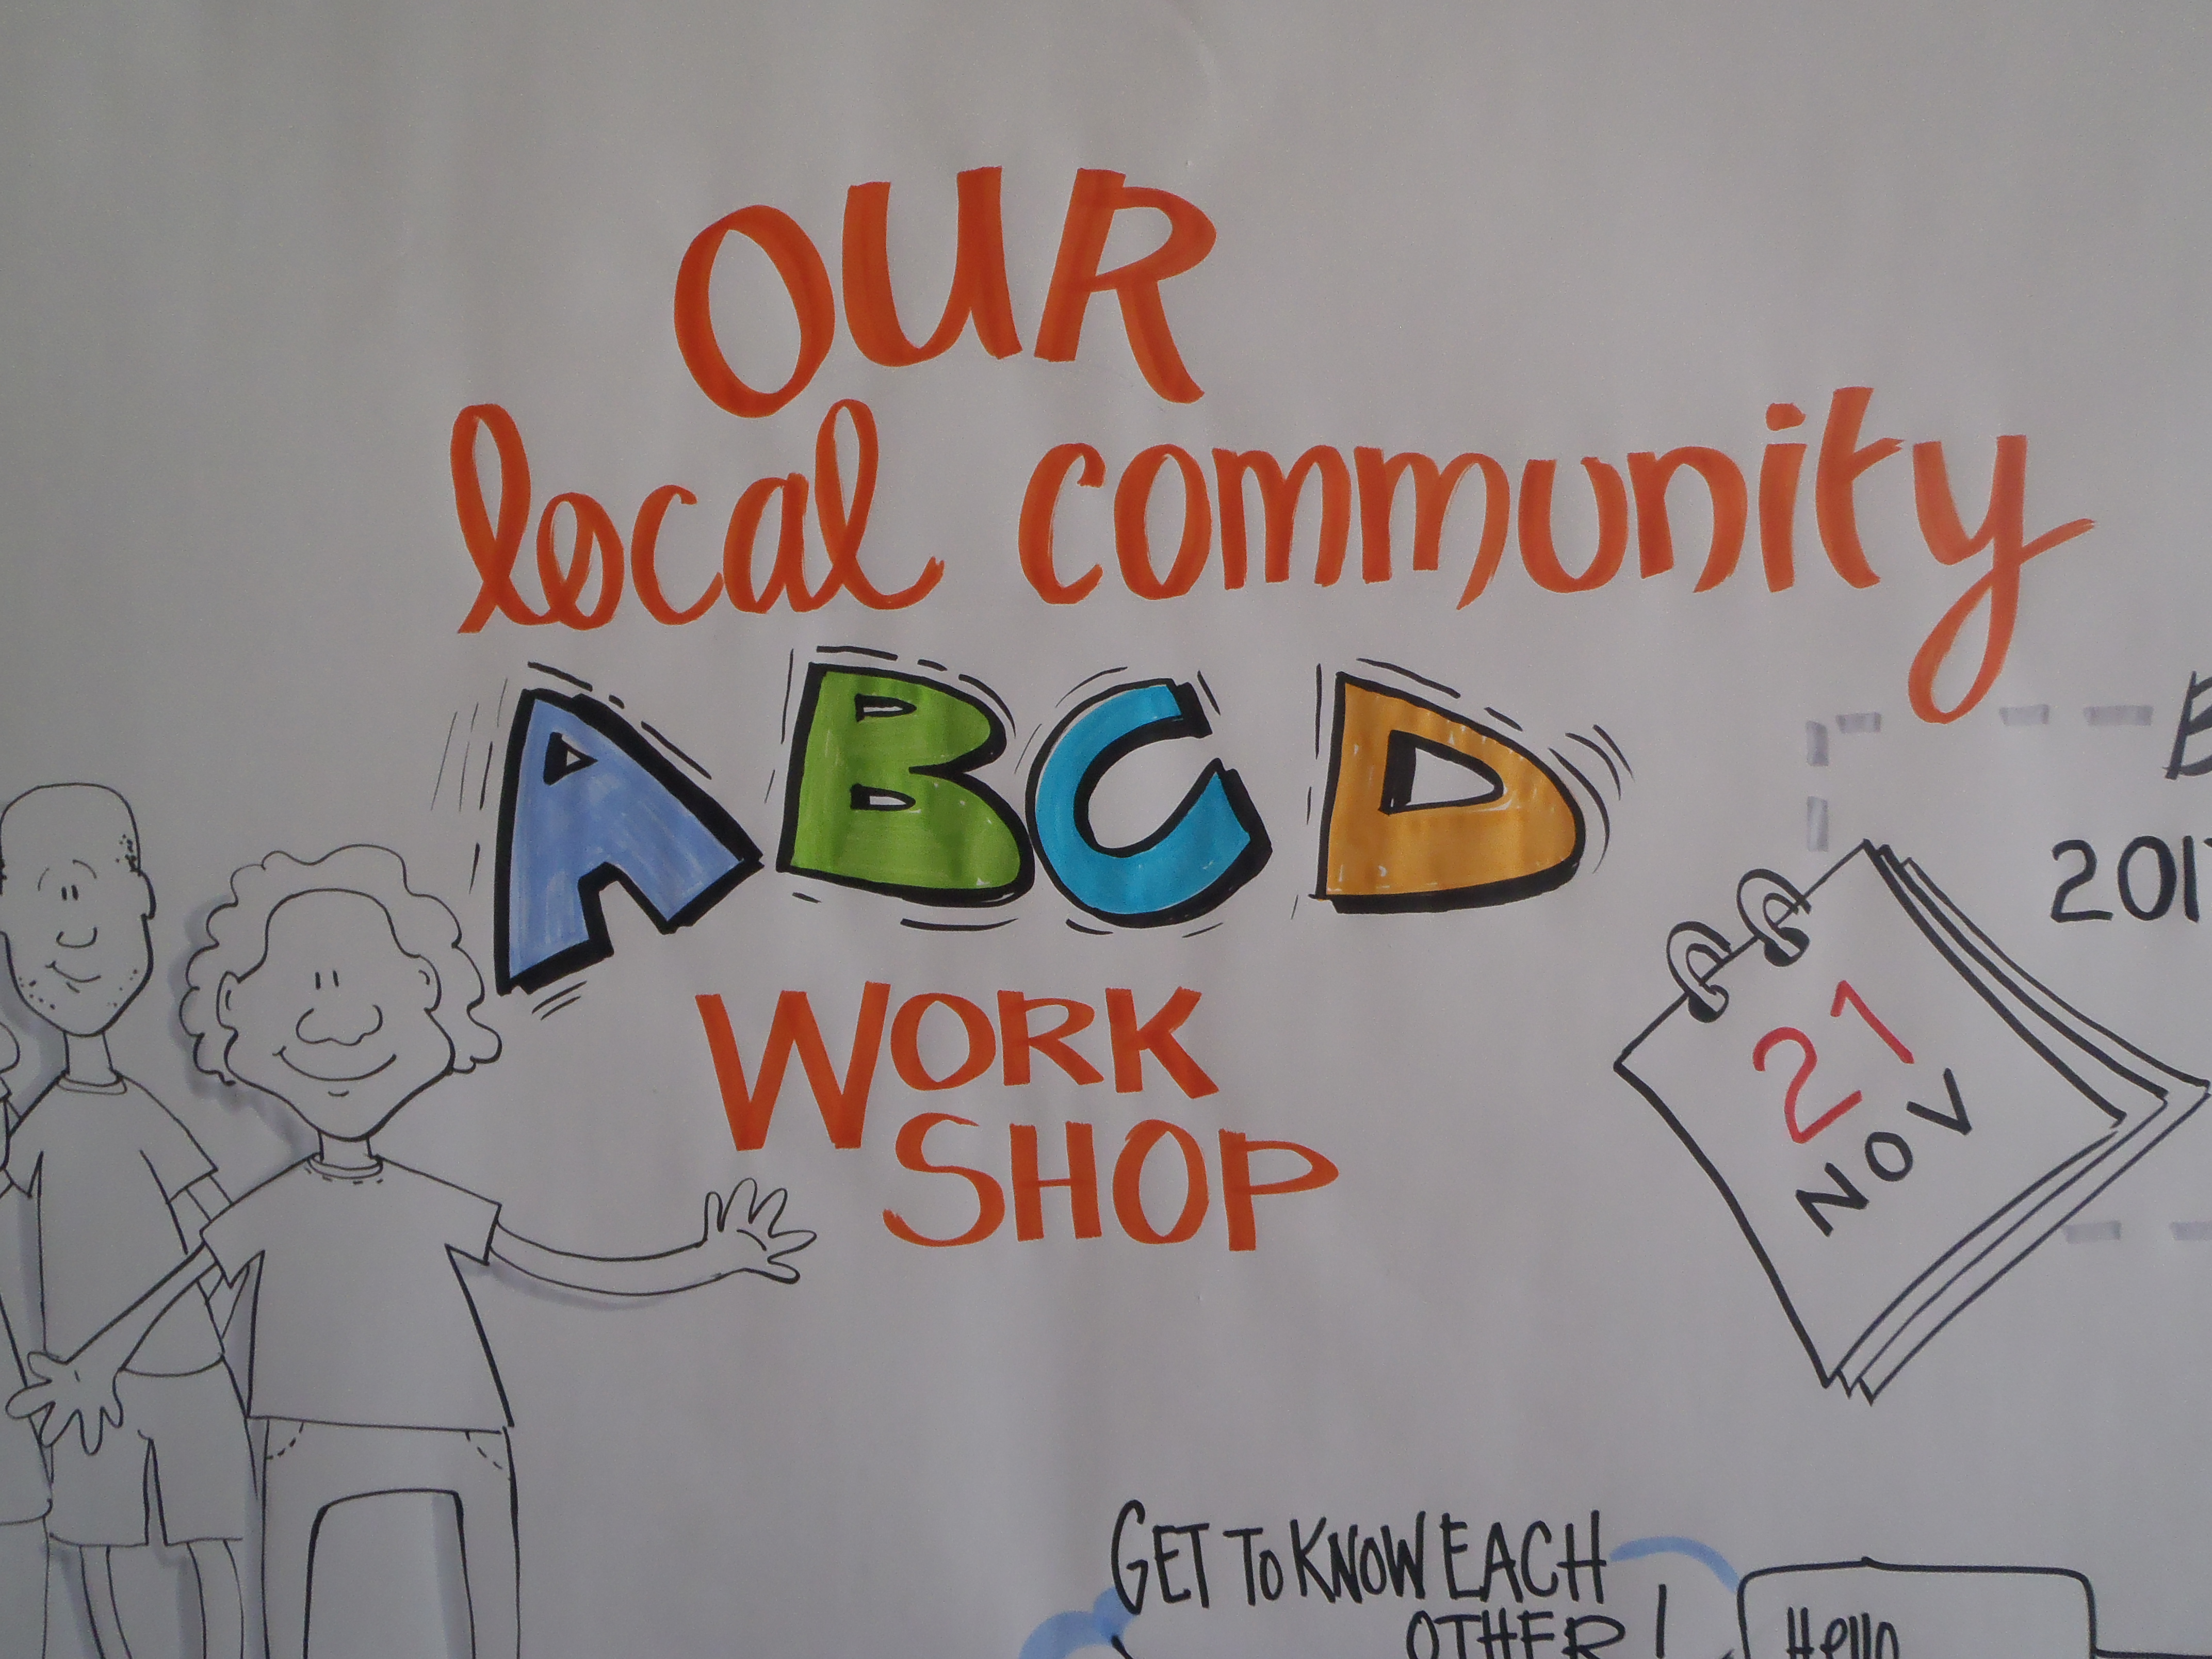 OUR
local community
ABCD
WORK
SHOP
21
NOV
GET TO KNOW EACH
OTHER!
Hello